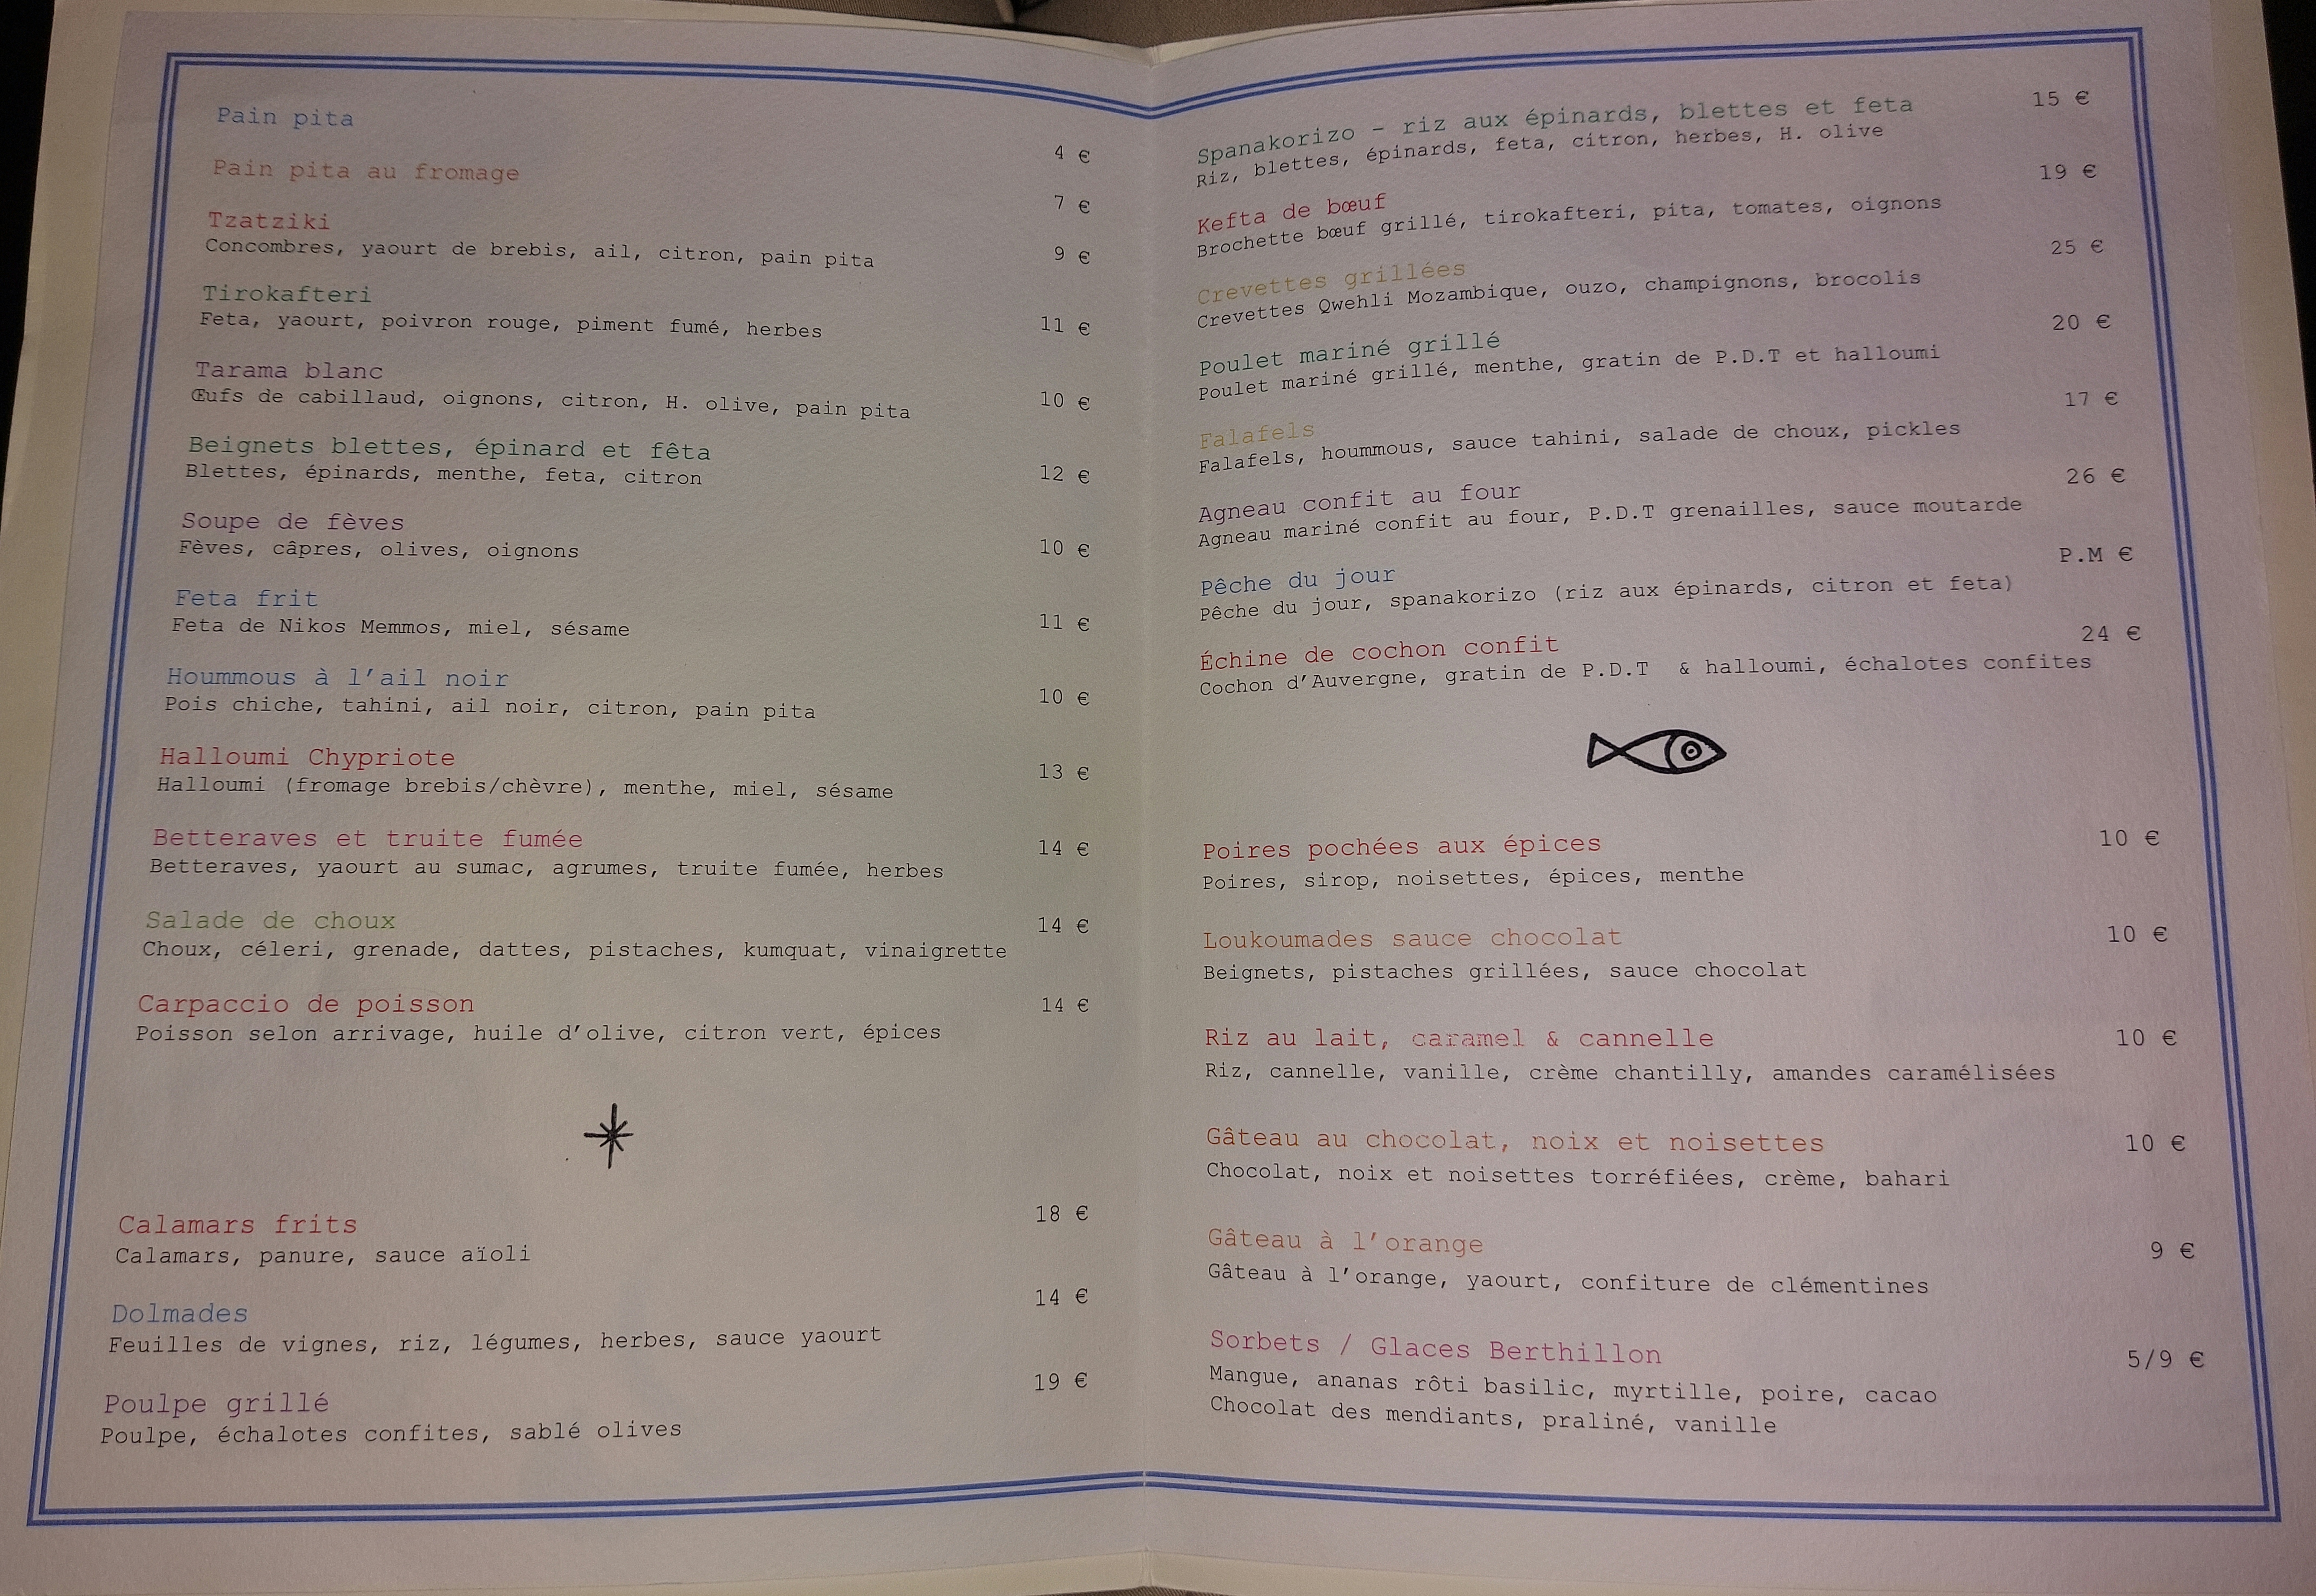 Pain pita 4 €
Pain pita au fromage 7 €
Tzatziki
Concombres, yaourt de brebis, ail, citron, pain pita 9 €
Tirokafteri
Feta, yaourt, poivron rouge, piment fumé, herbes 11 €
Tarama blanc
Œufs de cabillaud, oignons, citron, H. olive, pain pita 10 €
Beignets blettes, épinard et fêta
Blettes, épinards, menthe, feta, citron 12 €
Soupe de fèves
Fèves, câpres, olives, oignons 10 €
Feta frit
Feta de Nikos Memmos, miel, sésame 11 €
Hoummous à l'ail noir
Pois chiche, tahini, ail noir, citron, pain pita 10 €
Halloumi Chypriote 13 €
Halloumi (fromage brebis/chèvre), menthe, miel, sésame
Betteraves et truite fumée 14 €
Betteraves, yaourt au sumac, agrumes, truite fumée, herbes
Salade de choux 14 €
Choux, céleri, grenade, dattes, pistaches, kumquat, vinaigrette
Carpaccio de poisson 14 €
Poisson selon arrivage, huile d'olive, citron vert, épices
Calamars frits 18 €
Calamars, panure, sauce aïoli
Dolmades 14 €
Feuilles de vignes, riz, légumes, herbes, sauce yaourt
Poulpe grillé 19 €
Poulpe, échalotes confites, sablé olives
Spanakorizo - riz aux épinards, blettes et feta 15 €
Riz, blettes, épinards, feta, citron, herbes, H. olive
Kefta de bœuf 19 €
Brochette bœuf grillé, tirokafteri, pita, tomates, oignons
Crevettes grillées 25 €
Crevettes Qwehli Mozambique, ouzo, champignons, brocolis
Poulet mariné grillé 20 €
Poulet mariné grillé, menthe, gratin de P.D.T et halloumi
Falafels 17 €
Falafels, hoummous, sauce tahini, salade de choux, pickles
Agneau confit au four 26 €
Agneau mariné confit au four, P.D.T grenailles, sauce moutarde
Pêche du jour P.M €
Pêche du jour, spanakorizo (riz aux épinards, citron et feta)
Échine de cochon confit 24 €
Cochon d'Auvergne, gratin de P.D.T & halloumi, échalotes confites
Poires pochées aux épices 10 €
Poires, sirop, noisettes, épices, menthe
Loukoumades sauce chocolat 10 €
Beignets, pistaches grillées, sauce chocolat
Riz au lait, caramel & cannelle 10 €
Riz, cannelle, vanille, crème chantilly, amandes caramélisées
Gâteau au chocolat, noix et noisettes 10 €
Chocolat, noix et noisettes torréfiées, crème, bahari
Gâteau à l'orange 9 €
Gâteau à l'orange, yaourt, confiture de clémentines
Sorbets / Glaces Berthillon 5/9 €
Mangue, ananas rôti basilic, myrtille, poire, cacao
Chocolat des mendiants, praliné, vanille